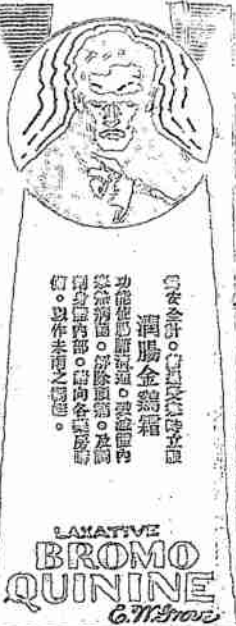 爲安全計。傷風受寒時立服
潤腸金鷄霜
功能使腸臟清通。體內
寒熱病菌。解除頭痛。及調
劑身體內部。請向各藥房購
備。以作未雨之綢繆。
LAXATIVE
BROMO
QUININE
E.W.Grove